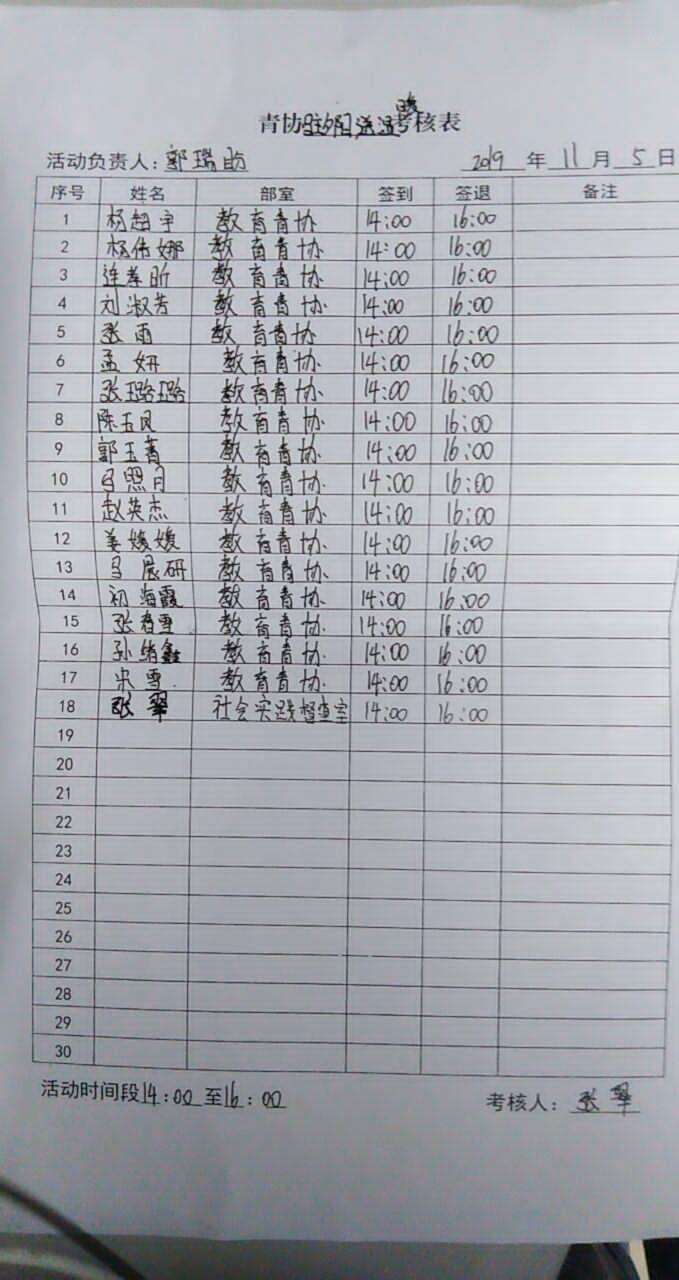 青协 送温暖考核表
活动负责人：郭瑞 2019 年 11 月 5 日
序号 姓名 部室 签到 签退 备注
1 杨超宇 教育青协 14:00 16:00
2 杨伟娜 教育青协 14:00 16:00
3 连孝昕 教育青协 14:00 16:00
4 刘淑芳 教育青协 14:00 16:00
5 张雨 教育青协 14:00 16:00
6 孟妍 教育青协 14:00 16:00
7 张璐璐 教育青协 14:00 16:00
8 陈玉凤 教育青协 14:00 16:00
9 郭玉菁 教育青协 14:00 16:00
10 马照月 教育青协 14:00 16:00
11 赵英杰 教育青协 14:00 16:00
12 姜媛媛 教育青协 14:00 16:00
13 马晨研 教育青协 14:00 16:00
14 初海霞 教育青协 14:00 16:00
15 张春雪 教育青协 14:00 16:00
16 孙绪鑫 教育青协 14:00 16:00
17 宋雪 教育青协 14:00 16:00
18 张翠 社会实践督查室 14:00 16:00
19
20
21
22
23
24
25
26
27
28
29
30
活动时间段14:00至16:00 考核人：张翠